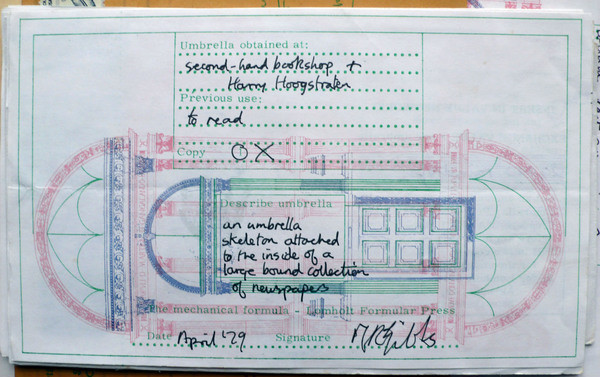 Umbrella obtained at:
second-hand bookshop +
Harry Hoogstraten
Previous use:
to read
Copy
Describe umbrella
an umbrella
skeleton attached
to the inside of a
large bound collection
of newspapers
The mechanical formula - Lomholt Formular Press
Date April '79 Signature